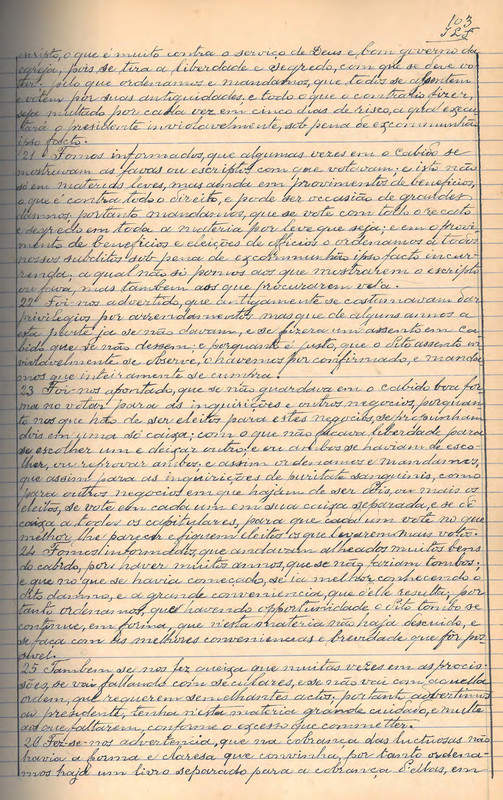 103
escripto, o que é muito contra o serviço de Deus e bom governo da
egreja, pois se tira a liberdade e segredo, com que se deve vo-
tar, pelo que ordenamos e mandamos, que todos se assentem
e votem por suas antiguidades, e todo o que o contrario fizer,
seja multado por cada vez em cinco dias de risco, a qual execu-
tará o presidente inviolavelmente, sob pena de excommunhão
ipso facto.
21 Fomos informados, que algumas vezes em o Cabido se
mostravam as favas ou escriptos com que votavam; e isto não
só em materias leves, mas ainda em provimentos de beneficios,
o que é contra todo o direito, e pode ser occasião de grandes
damnos, portanto mandamos, que se vote com todo o recato
e segredo em toda a materia por leve que seja; e em o provi-
mento de beneficios e eleições de officios o ordenamos a todos
nossos subditos sob pena de excommunhão ipso facto incur-
renda; a qual não só pomos aos que mostrarem o escripto
ou fava, mas tambem aos que procurarem vela.
22 Foi-nos advertido, que antigamente se costumavam dar
privilegios por arrendamento; mas que de alguns annos a
esta parte ja se não davam, e se fizera um assento em ca-
bido que se não dessem; e porquanto é justo, que o dito assento in-
violavelmente se observe, o havemos por confirmado, e manda-
mos que inteiramente se cumpra.
23 Foi-nos apontado, que se não guardava em o cabido boa for-
ma no votar para as inquirições e outros negocios, porquan-
to nos que hão de ser eleitos para estes negocios, se propunham
dois em uma só caixa; com o que não ficava liberdade para
se escolher um e deixar outro; e ou ambos se haviam de esco-
lher, ou reprovar ambos; e assim ordenamos e mandamos,
que assim para as inquirições de puritate sanguinis, como
para outros negocios em que hajam de ser dois, ou mais os
eleitos, se vote em cada um em sua caixa separada, e se dê
caixa a todos os capitulares, para que cada um vote no que
melhor lhe parecer e fiquem eleitos os que levarem mais votos.
24 Fomos informados, que andavam alheados muitos bens
do cabido, por haver muitos annos, que se não faziam tombos;
e que no que se havia começado, se ia melhor conhecendo o
dito damno, e a grande conveniencia, que d'elle resulta; por-
tanto ordenamos, que havendo opportunidade, o dito tombo se
continue, em forma, que nesta materia não haja descuido, e
se faça com as melhores conveniencias e brevidade que fôr pos-
sivel.
25 Tambem se nos fez queixa que muitas vezes em as procis-
sões, se vai fallando com seculares, e se não vai com aquella
ordem, que requerem semelhantes actos, portanto advertimos
ao presidente, tenha n'esta materia grande cuidado, e multe
aos que faltarem, conforme o excesso que cometter.
26 Fez-se-nos advertencia, que na cobrança das luctuosas não
havia a forma e clareza que convinha, por tanto ordena-
mos haja um livro separado para a cobrança d'ellas, em